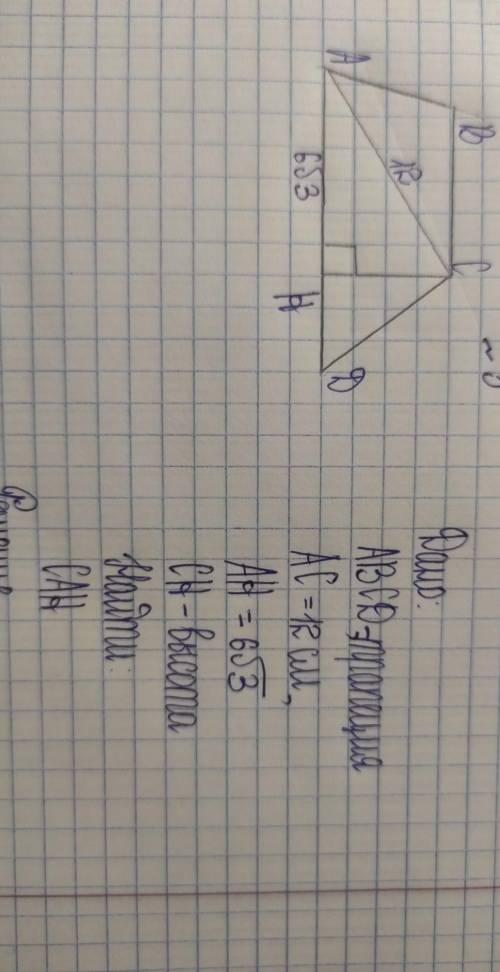 A
B
12
C
6√3
H
D
Дано:
ABCD-трапеция
AC = 12 см,
AH = 6√3
CH - высота
Найти:
CAH